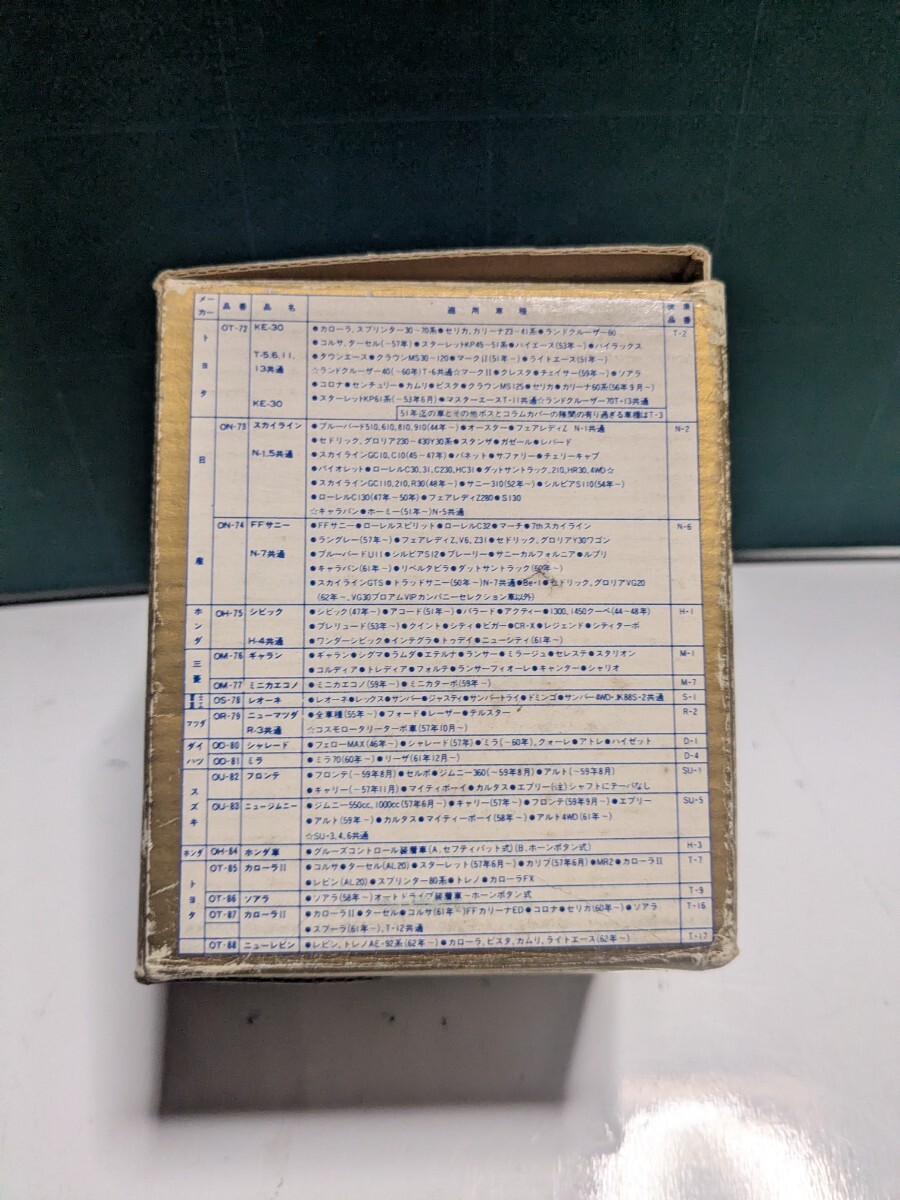 メーカー 品番 品名 適用車種 従来品番
トヨタ OT-72 KE-30 ●カローラ,スプリンター30~70系●セリカ,カリーナ23~41系●ランドクルーザー60 T-2
●コルサ,ターセル(~57年)●スターレットKP45~51系●ハイエース(53年~)●ハイラックス
T-5.6.11. ●タウンエース●クラウンMS30~120●マークII(51年~)●ライトエース(51年~)
13共通 ☆ランドクルーザー40(~60年)T-6共通☆マークII●クレスタ●チェイサー(59年~)●ソアラ
●コロナ●センチュリー●カムリ●ビスタ●クラウンMS125●セリカ●カリーナ60系(56年9月~)
KE-30 ●スターレットKP61系(~53年6月)●マスターエースT-11共通☆ランドクルーザー70T-13共通
51年迄の車とその他ボスとコラムカバーの隙間の有り過ぎる車種はT-3
日産 ON-73 スカイライン ●ブルーバード510,610,810,910(44年~)●オースター●フェアレディZ N-1共通 N-2
N-1.5共通 ●セドリック,グロリア230~430Y30系●スタンザ●ガゼール●レパード
●スカイラインGC10,C10(45~47年)●バネット●サファリー●チェリーキャブ
●バイオレット●ローレルC30,31,C230,HC31●ダットサントラック,210,HR30,4WD☆
●スカイラインGC110,210,R30(48年~)●サニー310(52年~)●シルビアS110(54年~)
●ローレルC130(47年~50年)●フェアレディZ280●S130
☆キャラバン●ホーミー(51年~)N-5共通
ON-74 FFサニー ●FFサニー●ローレルスピリット●ローレルC32●マーチ●7thスカイライン N-6
●ラングレー(57年~)●フェアレディZ,V6,Z31●セドリック,グロリアY30ワゴン
N-7共通 ●ブルーバードU11●シルビアS12●プレーリー●サニーカルフォルニア●ルプリ
●キャラバン(61年~)●リベルタビラ●ダットサントラック(60年~)
●スカイラインGTS●トラッドサニー(50年~)N-7共通●Be-1●セドリック,グロリアVG20
(62年~,VG30ブロアムVIPカンパニーセレクション車以外)
ホンダ OH-75 シビック ●シビック(47年~)●アコード(51年~)●バラード●アクティー●1300,1450クーペ(44~48年) H-1
●プレリュード(53年~)●クイント●シティ●ビガー●CR-X●レジェンド●シティターボ
H-4共通 ●ワンダーシビック●インテグラ●トゥデイ●ニューシティ(61年~)
三菱 OM-76 ギャラン ●ギャラン●シグマ●ラムダ●エテルナ●ランサー●ミラージュ●セレステ●スタリオン M-1
●コルディア●トレディア●フォルテ●ランサーフィオーレ●キャンター●シャリオ
OM-77 ミニカエコノ ●ミニカエコノ(59年~)●ミニカターボ(59年~) M-7
OS-78 レオーネ ●レオーネ●レックス●サンバー●ジャスティ●サンバートライ●ドミンゴ●サンバー4WD-JK88S-2共通 S-1
マツダ OR-79 ニューマツダ ●全車種(55年~)●フォード●レーザー●テルスター R-2
R-3共通 ☆コスモロータリーターボ車(57年10月~)
ダイハツ OD-80 シャレード ●フェローMAX(46年~)●シャレード(57年)●ミラ(~60年),クォーレ●アトレ●ハイゼット D-1
OD-81 ミラ ●ミラ70(60年~)●リーザ(61年12月~) D-4
スズキ OU-82 フロンテ ●フロンテ(~59年8月)●セルボ●ジムニー360(~59年8月)●アルト(~59年8月) SU-1
●キャリー(~57年11月)●マイティボーイ●カルタス●エブリー(注)シャフトにテーパなし
OU-83 ニュージムニー ●ジムニー550cc,1000cc(57年6月~)●キャリー(57年~)●フロンテ(59年9月~)●エブリー SU-5
●アルト(59年~)●カルタス●マイティーボーイ(58年~)●アルト4WD(61年~)
☆SU-3,4,6共通
ホンダ OH-84 ホンダ車 ●クルーズコントロール装着車(A,セフティパット式)(B,ホーンボタン式) H-3
トヨタ OT-85 カローラII ●コルサ●ターセル(AL20)●スターレット(57年6月~)●カリブ(57年6月)●MR2●カローラII T-7
●レビン(AL20)●スプリンター80系●トレノ●カローラFX
OT-86 ソアラ ●ソアラ(58年~)オートドライブ装着車~ホーンボタン式 T-9
OT-87 カローラII ●カローラII●ターセル●コルサ(61年~)FFカリーナED●コロナ●セリカ(60年~)●ソアラ T-16
●スープラ(61年~),T-12共通
OT-88 ニューレビン ●レビン,トレノAE-92系(62年~)●カローラ,ビスタ,カムリ,ライトエース(62年~) T-17